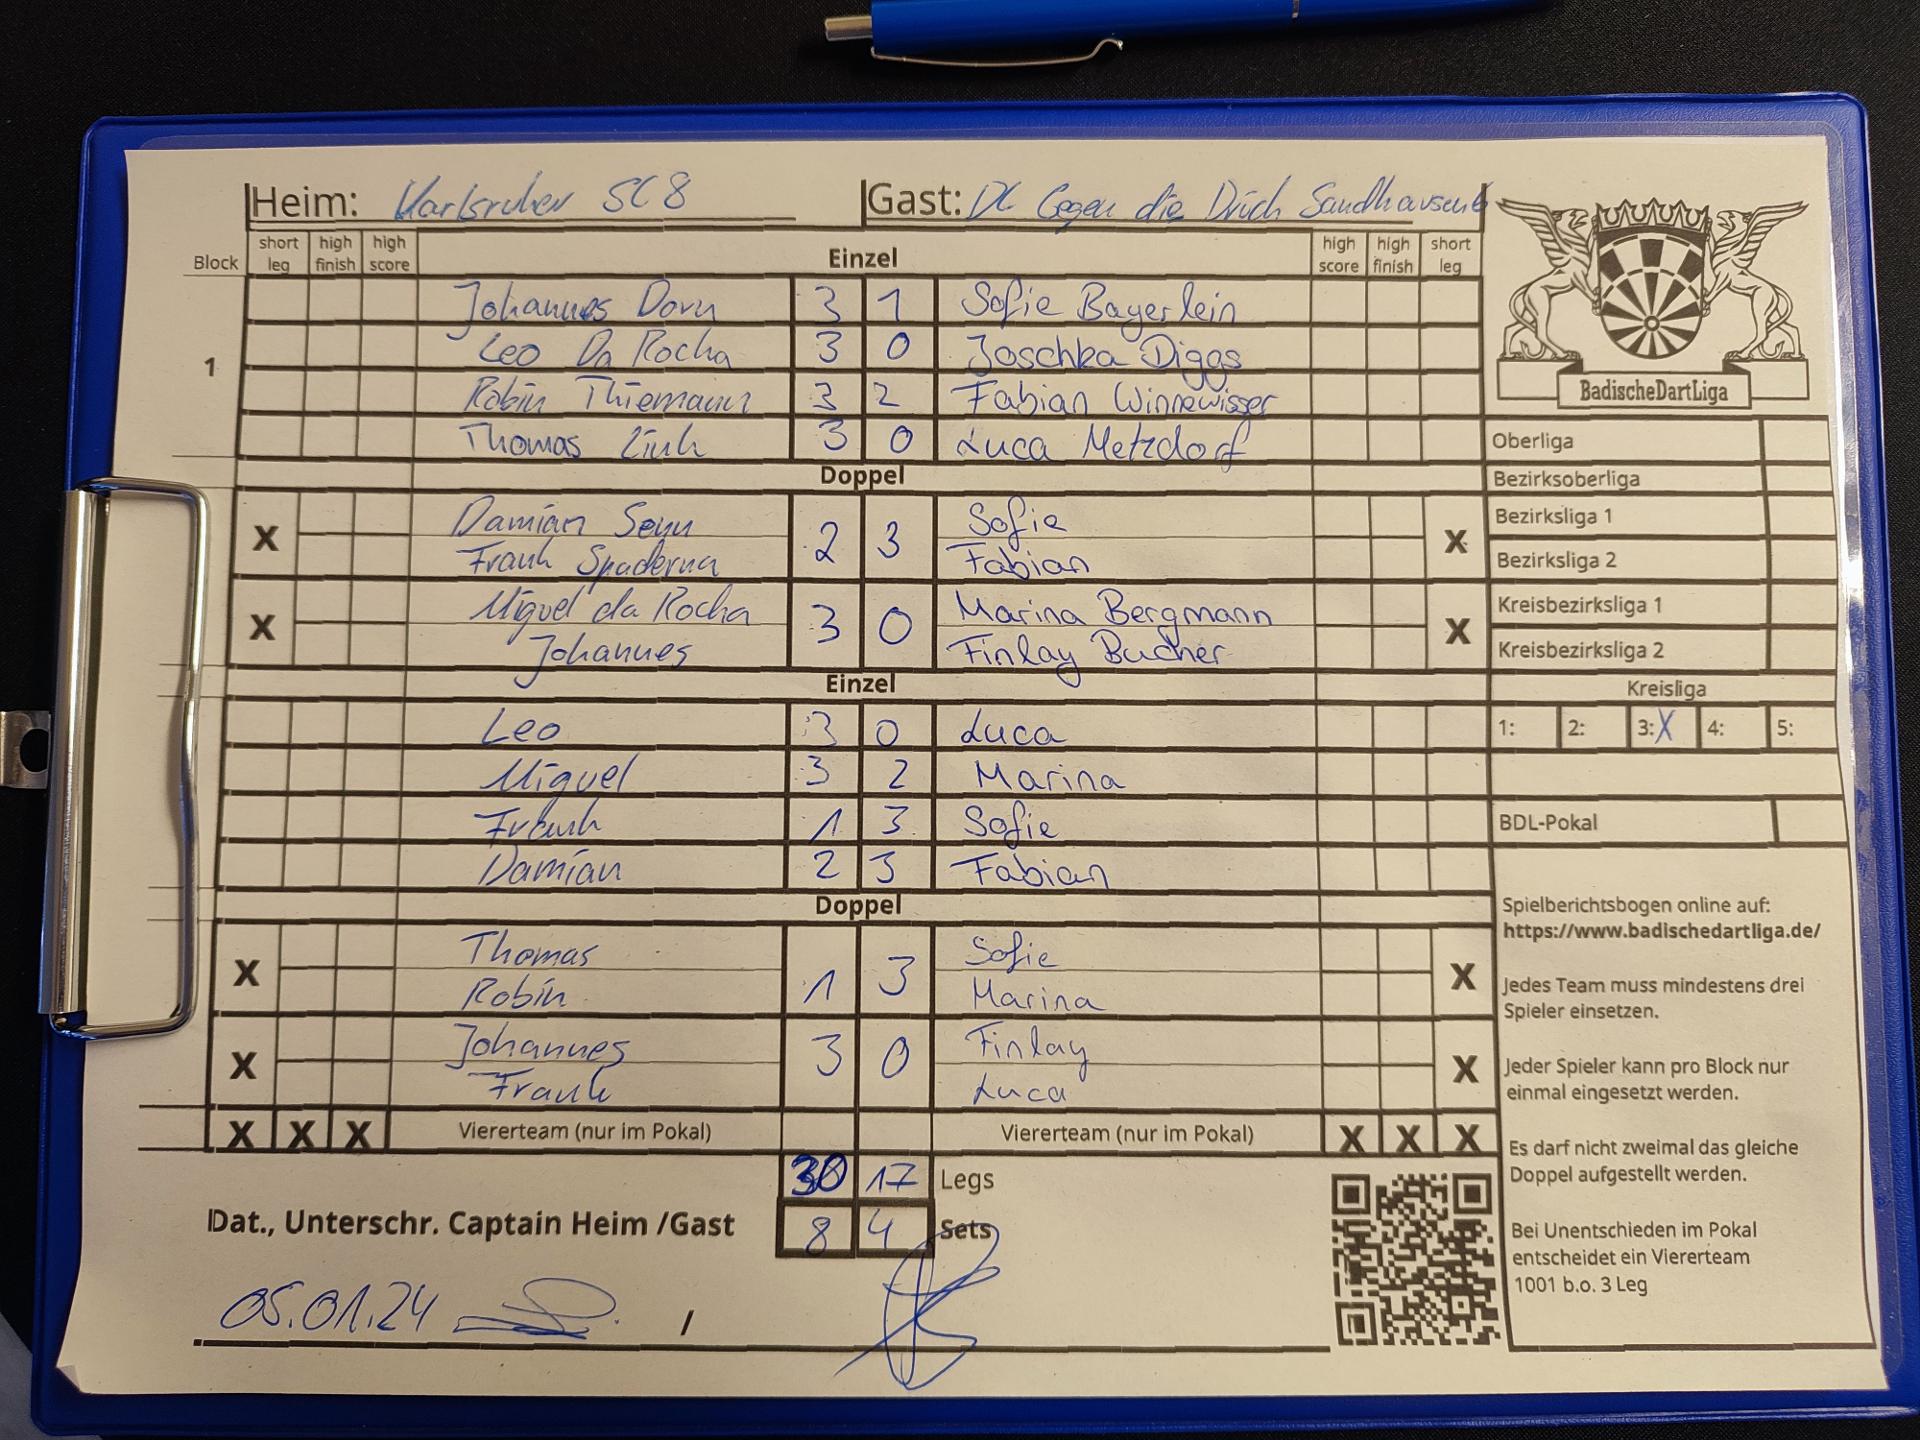 Heim: Karlsruher SC 8 Gast: DC Gegen die Drích Sandhausen 6
Block short leg high finish high score Einzel high score high finish short leg
Johannes Dorn 3 1 Sofie Bayerlein
1 Leo Da Rocha 3 0 Joschka Diggs
Robin Thiemann 3 2 Fabian Winnewisser
Thomas Link 3 0 Luca Metzdorf
Doppel
X Damian Senn 2 3 Sofie X
Frank Spaderna Fabian
X Miguel da Rocha 3 0 Marina Bergmann X
Johannes Finlay Bucher
Einzel
Leo 3 0 Luca
Miguel 3 2 Marina
Frank 1 3 Sofie
Damian 2 3 Fabian
Doppel
X Thomas 1 3 Sofie X
Robin Marina
X Johannes 3 0 Finlay X
Frank Luca
X X X Viererteam (nur im Pokal) Viererteam (nur im Pokal) X X X
30 17 Legs
Dat., Unterschr. Captain Heim /Gast 8 4 Sets
05.01.24 /
BadischeDartLiga
Oberliga
Bezirksoberliga
Bezirksliga 1
Bezirksliga 2
Kreisbezirksliga 1
Kreisbezirksliga 2
Kreisliga
1: 2: 3: X 4: 5:
BDL-Pokal
Spielberichtsbogen online auf:
https://www.badischedartliga.de/
Jedes Team muss mindestens drei
Spieler einsetzen.
Jeder Spieler kann pro Block nur
einmal eingesetzt werden.
Es darf nicht zweimal das gleiche
Doppel aufgestellt werden.
Bei Unentschieden im Pokal
entscheidet ein Viererteam
1001 b.o. 3 Leg